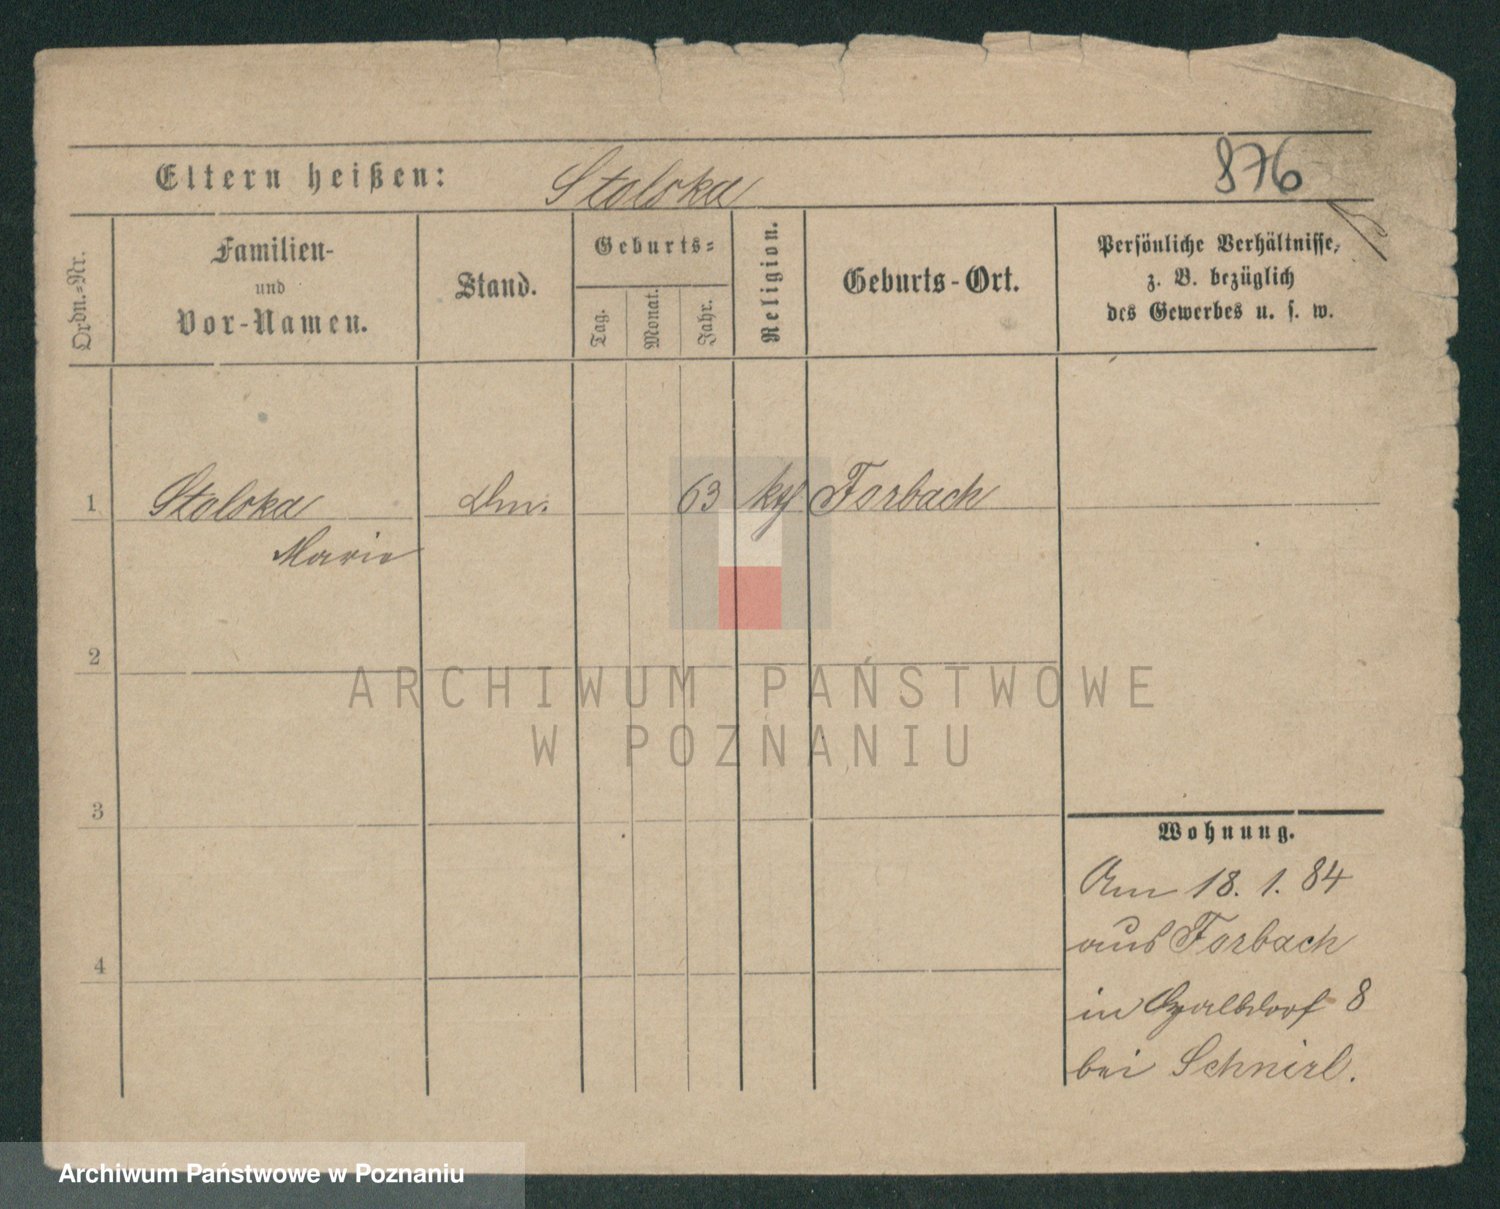 876
Eltern heißen: Stolska
Ordn.=Nr.
Familien-
und
Vor-Namen.
Stand.
Geburts=
Tag.
Monat.
Jahr.
Religion.
Geburts-Ort.
Persönliche Verhältnisse,
z. B. bezüglich
des Gewerbes u. s. w.
1 Stolska 63 Forbach
Marie
2
3
4
Wohnung.
Am 18. 1. 84
aus Forbach
in 8
bei Schnirl.
ARCHIWUM PAŃSTWOWE
W POZNANIU
Archiwum Państwowe w Poznaniu